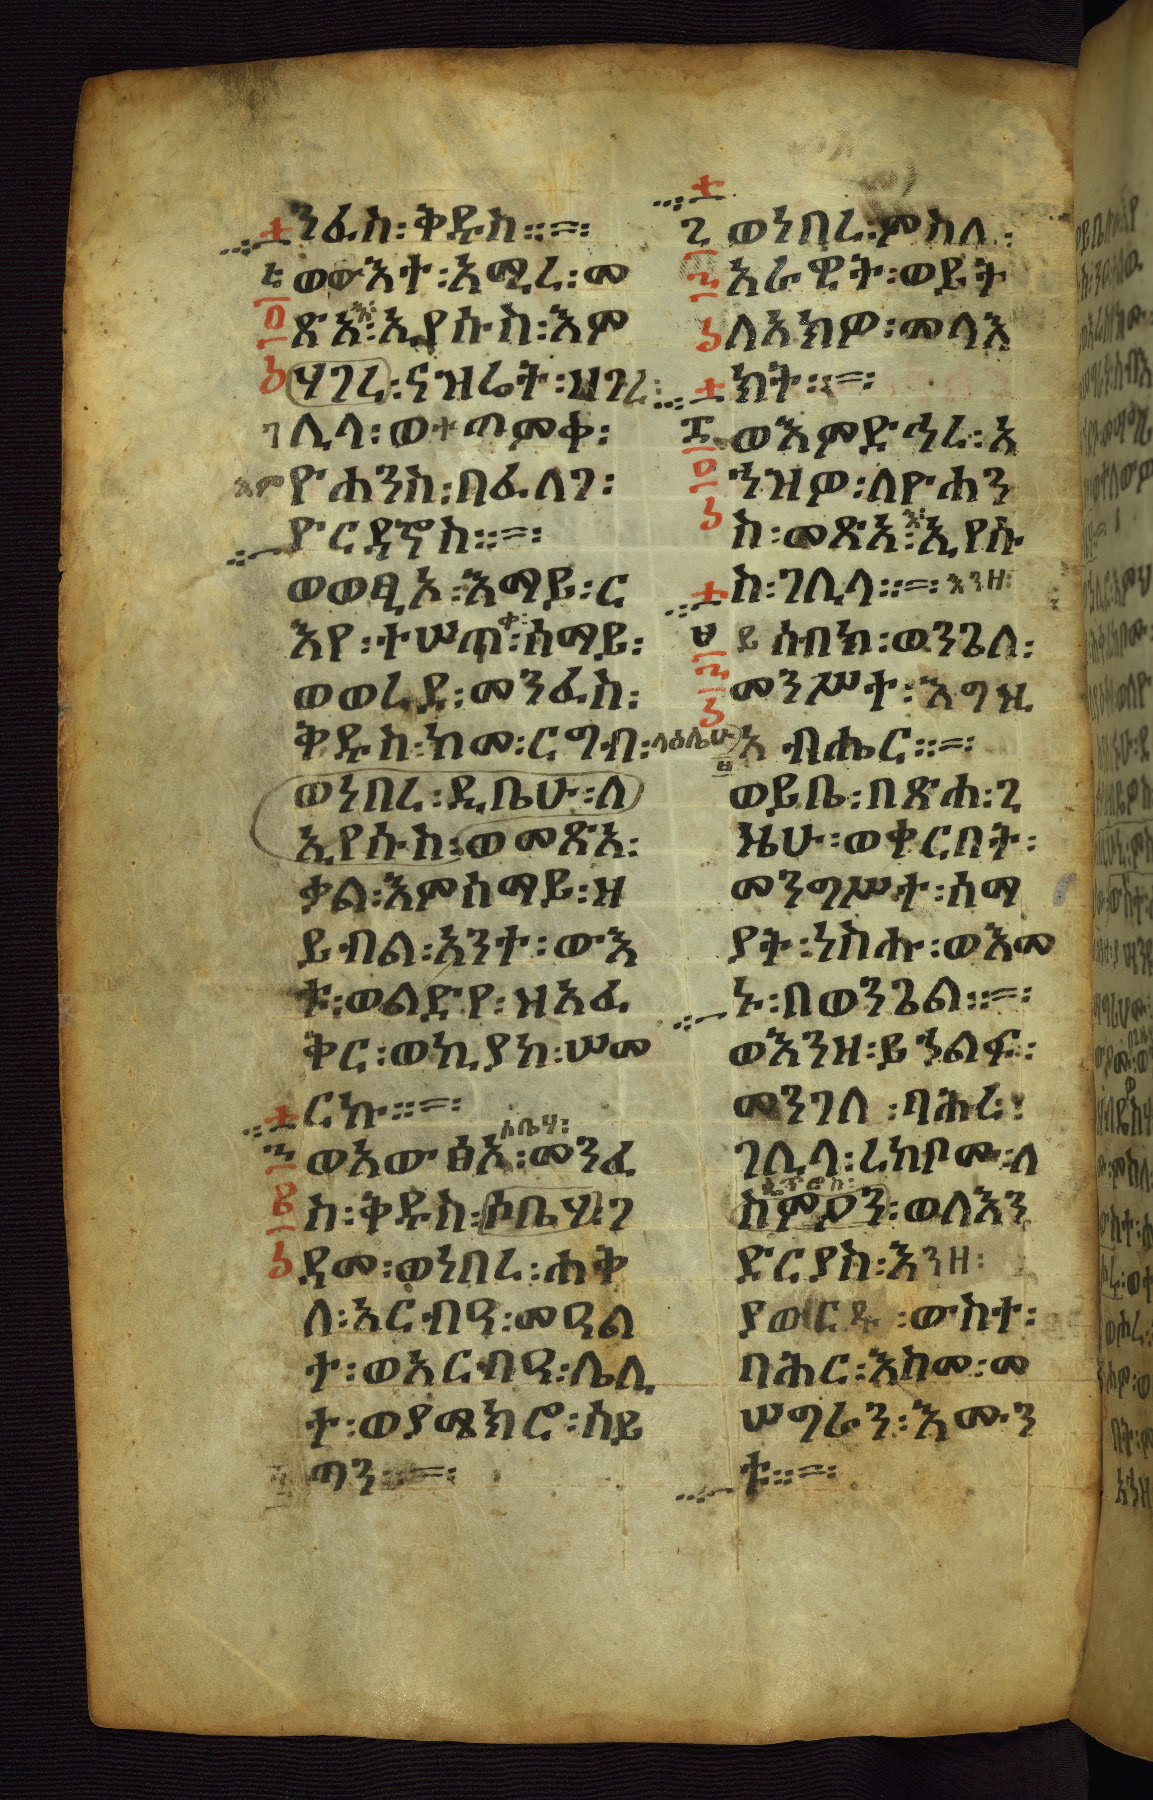 ንፈስ፡ቅዱስ።=፡
ወውእተ፡አሚረ፡መ
ጽአ፡ኢየሱስ፡እም
ሃገረ፡ናዝሬት፡ዘገረ፡
ሊላ፡ወተጠመቀ፡
እም ዮሐንስ፡በፈለገ፡
ዮርዳኖስ።=፡
ወወፂኦ፡እማይ፡ር
እየ፡ተሠጠ፡ሰማይ፡
ወወረደ፡መንፈስ፡
ቅዱስ፡ከመ፡ርግብ፡ላዕሌሁ
ወነበረ፡ዲቤሁ፡ለ
ኢየሱስ፡ወመጽአ፡
ቃል፡እምሰማይ፡ዘ
ይብል፡አንተ፡ውእ
ቱ፡ወልድየ፡ዘአፈ
ቅር፡ወኪያከ፡ሠመ
ርኩ።=፡
ወአውፅኦ፡መንፈ
ስ፡ቅዱስ፡ሶቤሃ፡ገ
ዳመ፡ወነበረ፡ሐቅ
ለ፡አርብዓ፡መዓል
ተ፡ወአርብዓ፡ሌሊ
ተ፡ወያሜክሮ፡ሰይ
ጣን።=፡
ወነበረ፡ምስለ፡
አራዊት፡ወይት
ለአክዎ፡መላእ
ክት።=፡
ወእምድኅረ፡አ
ኀዝዎ፡ለዮሐን
ስ፡መጽአ፡ኢየሱ
ስ፡ገሊላ።=፡እንዘ፡
ይ ሰብክ፡ወንጌለ፡
መንሥተ፡እግዚ
አ ብሔር።=፡
ወይቤ፡በጽሐ፡ጊ
ዜሁ፡ወቀርበት፡
መንግሥተ፡ሰማ
ያት፡ነስሑ፡ወእመ
ኑ፡በወንጌል።=፡
ወእንዘ፡ይኀልፍ፡
መንገለ፡ባሕረ፡
ገሊላ፡ረከቦሙ፡ለ
ስምዖን፡ወለእን
ድርያስ፡እንዘ፡
ያወርዱ፡ውስተ፡
ባሕር፡እስመ፡መ
ሠግራን፡እሙን
ቱ።=፡